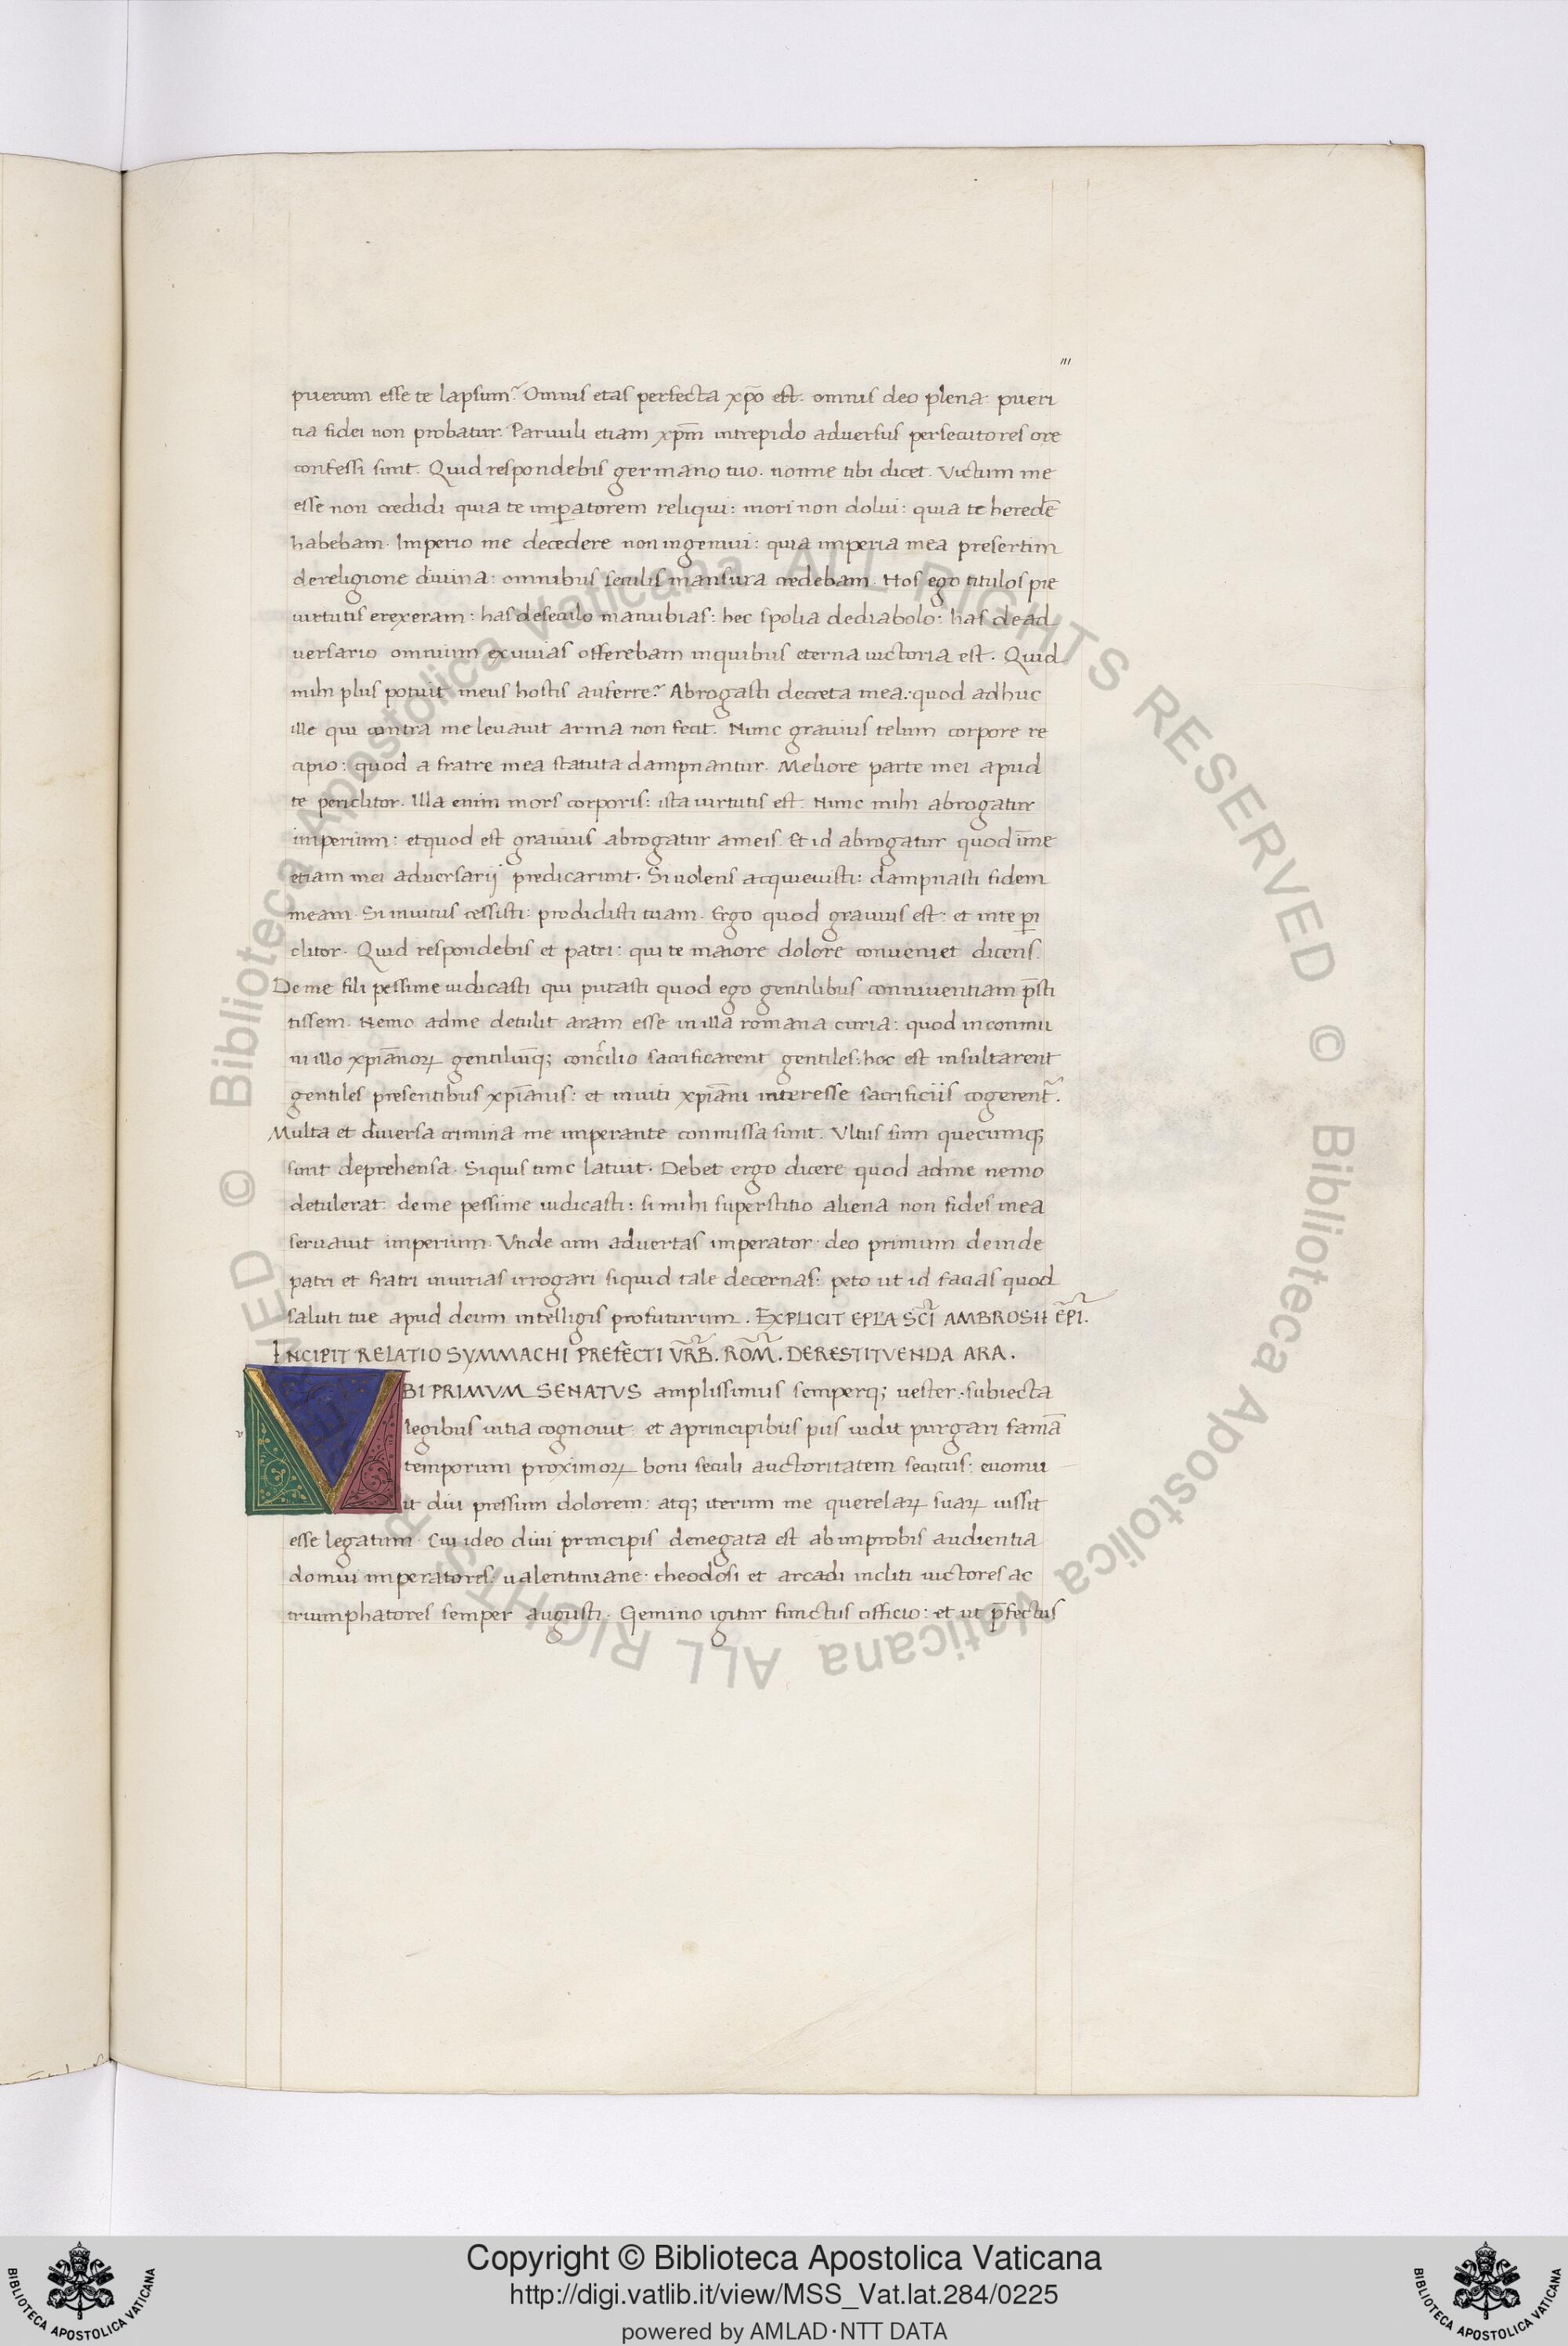 ‴
puerum esse te lapsum? Omnis etas perfecta xp̄o est. omnis deo plena: pueri
tia fidei non probatur. Paruuli etiam xp̄m intrepido aduersus persecutores ore
confessi sunt. Quid respondebis germano tuo. nonne tibi dicet. Victum me
esse non credidi quia te imꝑatorem reliqui: mori non dolui: quia te heredē
habebam. Imperio me decedere non ingemui: quia imperia mea presertim
dereligione diuina: omnibus seculis mansura credebam. Hos ego titulos pie
uirtutis erexeram: has deseculo manubias: hec spolia dediabolo: has de ad
uersario omnium exuuias offerebam inquibus eterna uictoria est. Quid
mihi plus potuit meus hostis auferre? Abrogasti decreta mea: quod adhuc
ille qui contra me leuauit arma non fecit. Nunc grauius telum corpore re
cipio: quod a fratre mea statuta dampnantur. Meliore parte mei apud
te periclitor. Illa enim mors corporis: ista uirtutis est. Nunc mihi abrogatur
imperium: etquod est grauius abrogatur ameis. Et id abrogatur quod īme
etiam mei aduersarij predicarunt. Si uolens acquieuisti: dampnasti fidem
meam. Si inuitus cessisti: prodidisti tuam. Ergo quod grauius est: et inte ꝑi
clitor. Quid respondebis et patri: qui te maiore dolore conueniet dicens.
De me fili pessime iudicasti qui putasti quod ego gentilibus conniuentiam p̄sti
tissem. Nemo adme detulit aram esse in illa romana curia: quod inconmu
ni illo xp̄ianoꝝ gentiliūq; concilio sacrificarent gentiles: hoc est insultarent
gentiles presentibus xp̄ianis: et inuiti xp̄iani interesse sacrificiis cogerent᷑.
Multa et diuersa crimina me imperante conmissa sunt. Vltus sum quecumq;
sunt deprehensa. Siquis tunc latuit. Debet ergo dicere quod adme nemo
detulerat: deme pessime iudicasti: si mihi superstitio aliena non fides mea
seruauit imperium. Vnde cum aduertas imperator deo primum deinde
patri et fratri iniurias irrogari siquid tale decernas: peto ut id facias quod
saluti tue apud deum intelligis profuturum. EXPLICIT EPLA SC̄I AMBROSII ĒPI.
INCIPIT RELATIO SYMMACHI PREFECTI VR̄B. ROM̄. DERESTITVENDA ARA.
VBI PRIMVM SENATVS amplissimus semperq; uester: subiecta
legibus uitia cognouit: et aprincipibus piis uidit purgari famā
temporum proximoꝝ boni seculi auctoritatem secutus: euomu
it diu pressum dolorem: atq; iterum me querelaꝝ suaꝝ iussit
esse legatum. Cui ideo diui principis denegata est ab improbis audientia
domini imperatores. ualentiniane: theodosi et arcadi incliti uictores ac
triumphatores semper augusti. Gemino igitur functus officio: et ut p̄fectus
Copyright © Biblioteca Apostolica Vaticana
http://digi.vatlib.it/view/MSS_Vat.lat.284/0225
powered by AMLAD·NTT DATA
BIBLIOTECA APOSTOLICA VATICANA
BIBLIOTECA APOSTOLICA VATICANA
© Biblioteca Apostolica Vaticana ALL RIGHTS RESERVED © Biblioteca Apostolica Vaticana ALL RIGHTS RESERVED